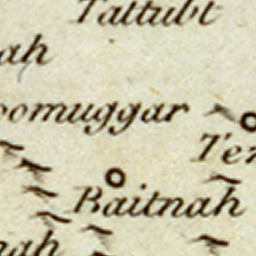 Taltubt
ah
oomuggar
Ter
Baitnah
nah